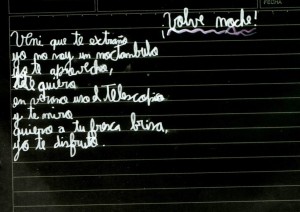 FECHA
¡Volvé noche!
Vení que te extraño
yo no soy un noctambulo
yo te aprovecho,
te quiero
en verano uso el telescopio
y te miro
quiero a tu fresca brisa,
yo te disfruto.